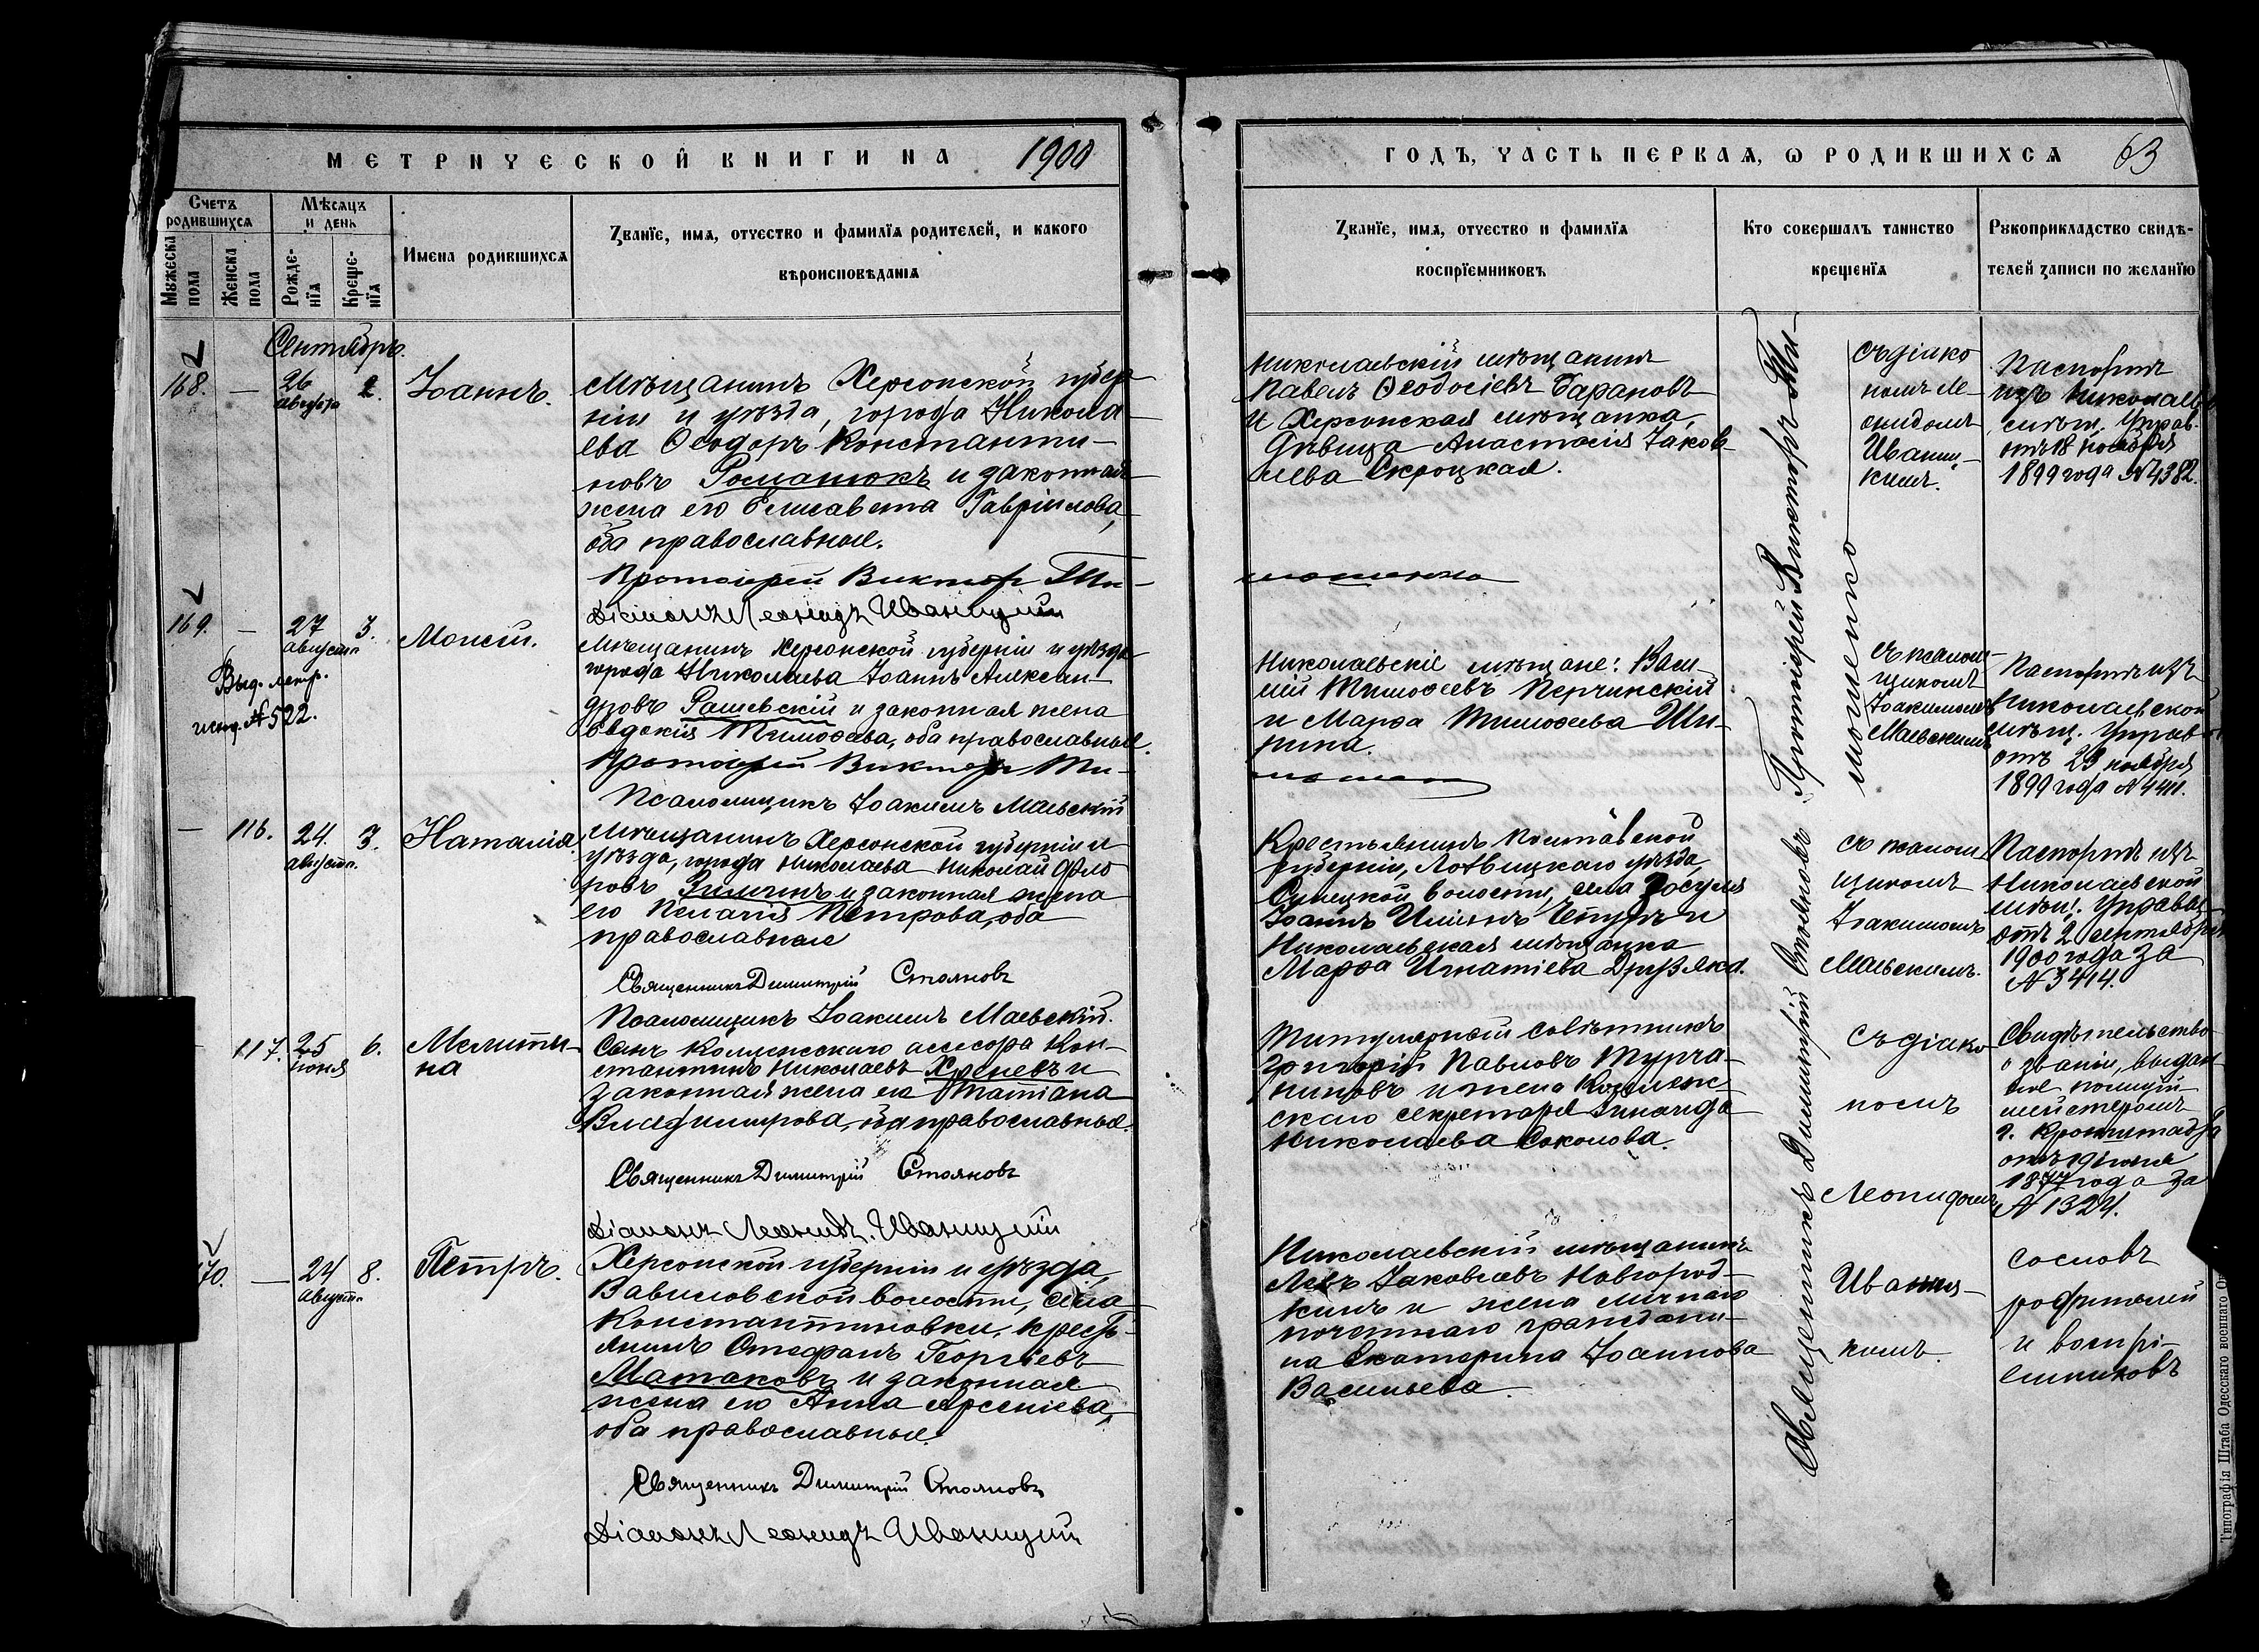 МЕТРИЧЕСКОЙ КНИГИ НА 1900
ГОДЪ, ЧАСТЬ ПЕРВАЯ, Ѡ РОДИВШИХСЯ 63
Счетъ родившихся
Мужеска пола
Женска пола
Мѣсяцъ и день
Рожде-
нія
Креще-
нія
Имена родившихся
Званіе, имя, отчество и фамилія родителей, и какого
вѣроисповѣданія
Званіе, имя, отчество и фамилія
воспріемниковъ
Кто совершалъ таинство
крещенія
Рукоприкладство свидѣ-
телей записи по желанію
Сентябрь.
168. — 26 августа 2. Іоаннъ.
Мѣщанинъ Херсонской губер-
ніи и уѣзда, города Никола-
ева Ѳеодоръ Константи-
новъ Романюкъ и законная
жена его Елисавета Гавріилова,
оба православные.
Протоіерей Викторъ Ти-
мошенко
Діаконъ Леонидъ Иваницкій
Николаевскій мѣщанинъ
Павелъ Ѳеодосіевъ Барановъ
и Херсонская мѣщанка,
дѣвица Анастасія Іаков-
лева Скроцкая.
Протоіерей Викторъ Ти-
мошенко
съ діако
номъ Ле-
онидомъ
Иваниц-
кимъ.
Паспортъ
изъ Николаев
мѣщ. Управ.
отъ 18 ноября
1899 года №4382.
169. — 27 августа 3. Моисей.
Выд. метр.
исход. №522.
Мѣщанинъ Херсонской губерніи и уѣзда
города Николаева Іоаннъ Алексан-
дровъ Рашевскій и законная жена
Евдокія Тимоѳеева, оба православные.
Протоіерей Викторъ Ти-
Псаломщикъ Іоакимъ Маевскій
Николаевскіе мѣщане: Васи-
лій Тимоѳеевъ Перчинскій
и Марѳа Тимоѳеева Ши-
пина.
съ псалом-
щикомъ
Іоакимомъ
Маевскимъ
Паспортъ изъ
Николаевской
мѣщ. Управы
отъ 23 ноября
1899 года №4411.
— 116. 24. августа. 3. Наталія
Мѣщанинъ Херсонской губерніи и
уѣзда, города Николаева Николай Фло-
ровъ Зиминъ и законная жена
его Пелагія Петрова, оба
православные
Священникъ Димитрій Стояновъ
Псаломщикъ Іоакимъ Маевскій.
Крестьянинъ Полтавской
губерніи, Лохвицкаго уѣзда,
волости, села
Іоаннъ и
Николаевская мѣщанка
Марѳа Игнатіева Друзяка.
Священникъ Димитрій Стояновъ
съ псалом
щикомъ
Іоакимомъ
Маевскимъ.
Паспортъ изъ
Николаевской
мѣщ. Управы
отъ 2 сентября
1900 года за
№3414.
117. 25 іюня 6. Мелити-
на
Сынъ Коллежскаго ассесора Кон-
стантинъ Николаевъ Хреневъ и
законная жена его Татіана
Владимирова, оба православные.
Священникъ Димитрій Стояновъ
Діаконъ Леонидъ Иваницкій
Титулярный совѣтникъ
Григорій Павловъ Турча-
ниновъ и жена Коллеж-
скаго секретаря Зинаида
Николаева Соколова.
съ діако-
номъ
Леонидомъ
Иваниц-
кимъ.
Свидѣтельство
о званіи, выдан
ное полицій-
мейстеромъ
г. Кронштадта
отъ 19 іюня
1877 года за
№1324.
170. — 24 августа 8. Петръ.
Херсонской губерніи и уѣзда,
Вавиловской волости, села
Константиновки, кресть-
янинъ Стефанъ Георгіевъ
Матаковъ и законная
жена его Анна Арсеніева,
оба православные.
Священникъ Димитрій Стояновъ
Діаконъ Леонидъ Иваницкій
Николаевскій мѣщанинъ
Левъ Іаковлевъ Новгород-
кинъ и жена личнаго
почетнаго граждани-
на Екатерина Іоаннова
Васильева.
со словъ
родителей
и воспрі-
емниковъ
Типографія Штаба Одесскаго военнаго